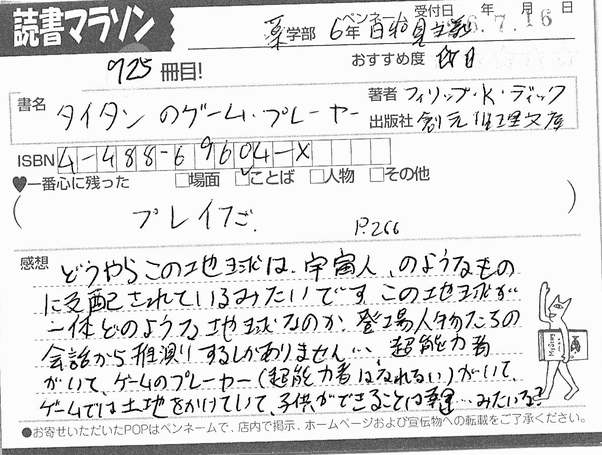 読書マラソン
受付日 年 月 日
6.7.16
薬学部 6年 ペンネーム 日和見主義
925冊目! おすすめ度
書名 タイタンのゲーム・プレーヤー
著者 フィリップ・K・ディック
出版社 創元推理文庫
ISBN 4-488-69604-X
♥一番心に残った □場面 ☑ことば □人物 □その他
( プレイだ. P.266 )
感想 どうやらこの地球は、宇宙人、のようなもの
に支配されているみたいです。この地球が
一体どのような地球なのか、登場人物たちの
会話から推測するしかありません… 超能力者
がいて、ゲームのプレーヤー(超能力者はなれない)がいて、
ゲームでは土地をかけていて、子供ができることは幸運…みたいな?
●お寄せいただいたPOPはペンネームで、店内で掲示、ホームページおよび宣伝物への転載をご了承ください。